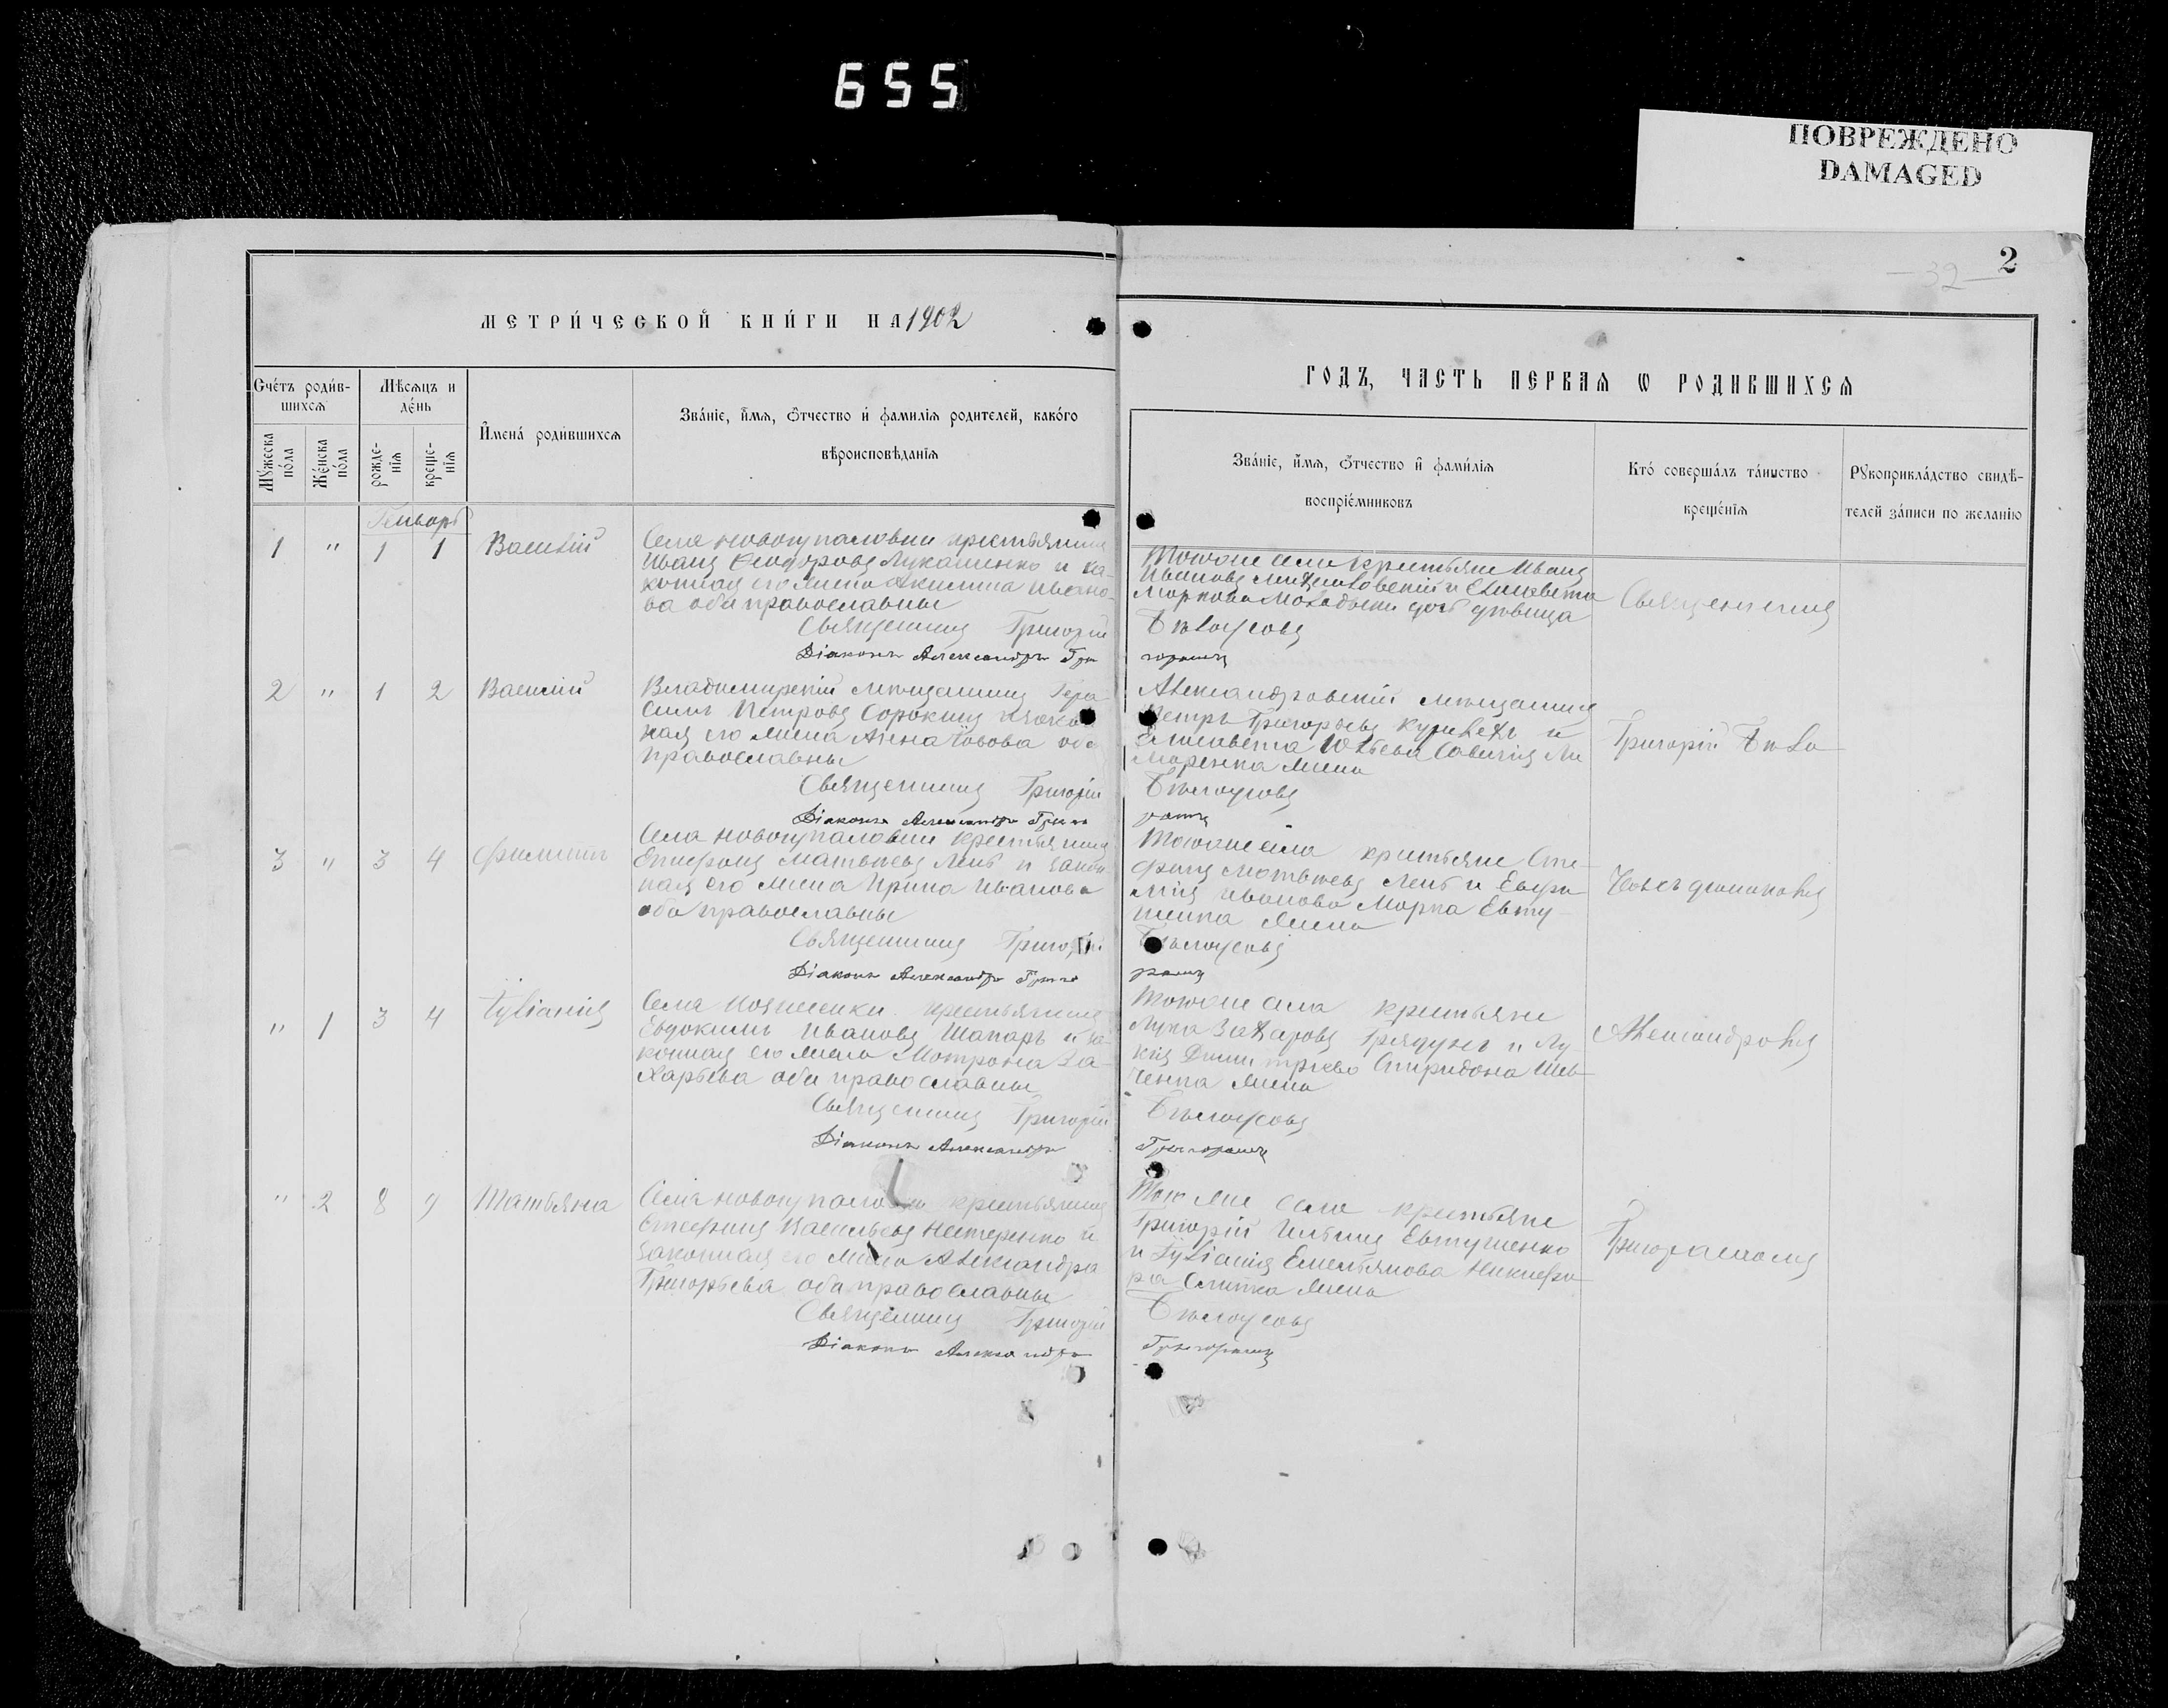 655
ПОВРЕЖДЕНО
DAMAGED
2
32
МЕТРИ́ЧЕСКОЙ КНИ́ГИ НА 1902
ГОДЪ, ЧАСТЬ ПЕРВАЯ Ѡ РОДИВШИХСЯ
Сче́тъ роди́в-
шихся
Мѣсяцъ и
де́нь
Му́жеска
по́ла
Же́нска
по́ла
рожде-
нїя
креще-
нїя
Имена́ роди́вшихся
Зва́нїе, и́мя, ѻ́тчество и́ фамилїя родителей, како́го
вѣроисповѣ́данїя
Зва́нїе, и́мя, ѻ́тчество и́ фами́лїя
воспрїе́мниковъ
Кто́ соверша́лъ та́инство
креще́нїя
Рукоприкла́дство свидѣ́-
телей за́писи по желанїю
Генварь
1 " 1 1 Василій
Села Новокупаловки крестьянинъ
Иванъ Ѳеодоровъ Лукашенко и за-
конная его жена Акилина Ивано-
ва оба православны
Священникъ Григорій
Діаконъ Александръ Гри
Тогоже села крестьяне Иванъ
Ивановъ и Елисавета
Маркова дочь дѣвица
Бѣлоусовъ
горашъ
Священникъ
2 " 1 2 Василій
Владимирскій мѣщанинъ Гера-
симъ Петровъ Сорокинъ и закон
ная его жена Анна оба
православны
Священникъ Григорій
Діаконъ Александръ Григо
Александровскій мѣщанинъ
Петръ Григорьевъ и
Елисавета
жена
Бѣлоусовъ
рашъ
Григорій Бѣло
3 " 3 4 Филиппъ
Села Новокупаловки крестьянинъ
Матвѣевъ и закон
ная его жена Ирина Иванова
оба православны
Священникъ Григорій
Діаконъ Александръ Григо
Тогоже села крестьяне
Матвѣевъ и Евфи-
мія Иванова Марка Евту-
шенка жена
Бѣлоусовъ
рашъ
усовъ діакономъ
" 1 3 4 Іуліанія
Села крестьянинъ
Евдокимъ Ивановъ Шапарь и за-
конная его жена Матрона За-
харьева оба православны
Священникъ Григорій
Діаконъ Александръ
Тогоже села крестьяне
Лука Захаровъ и Лу-
кія Димитріева Спиридона Шев-
ченка жена
Бѣлоусовъ
Григорашъ
Александромъ
" 2 8 9 Татьяна
Села Новокупаловки крестьянинъ
Стефанъ Васильевъ Нестеренко и
законная его жена Александра
Григорьева оба православны
Священникъ Григорій
Діаконъ Александръ
Тогоже села крестьяне
Григорій Ильинъ Евтушенко
и Іуліанія Емельянова Никифо-
ра жена
Бѣлоусовъ
Григорашъ
Григорашомъ